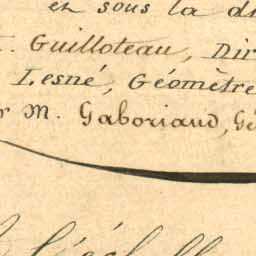 et sous la di
. Guilloteau, Dir
Lesné, Géomètre
r M. Gaboriaud, Gé
l'échell